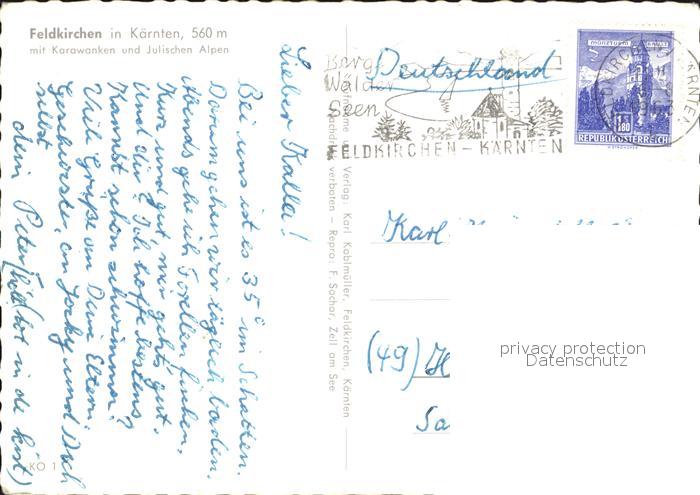 Feldkirchen in Kärnten, 560 m
mit Karawanken und Julischen Alpen
Lieber Kalla!
Bei uns ist es 35° im Schatten.
Darum gehen wir täglich baden.
Abends gehe ich Forellen fischen.
Kurz und gut, mir geht's gut.
Und dir? Ich hoffe bestens
Kannst schon schwimmen?
Viele Grüße an Deine Eltern,
Geschwister, an Jocky und Dich
selbst
dein Peter
KO 1
Verlag: Karl Koblmüller, Feldkirchen, Kärnten
verboten - Repro: F. Sochor, Zell am See
Berge
Wälder
Seen
FELDKIRCHEN - KÄRNTEN
Deutschland
MÜNZTURM HALL I.T.
1.80
REPUBLIK ÖSTERREICH
Karl
(49) H
Sa
privacy protection
Datenschutz